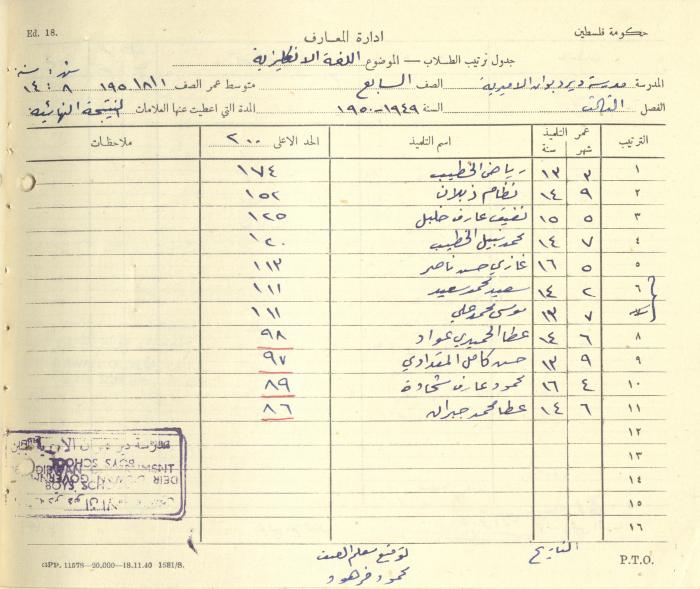 Ed. 18. ادارة المعارف حكومة فلسطين
جدول ترتيب الطلاب — الموضوع اللغة الانكليزية
المدرسة مدرسة دير ديوان الاميرية الصف السابع متوسط عمر الصف ١٩٥٠/٨/١ ٨ ١٤
الفصل الثالث السنة ١٩٤٩-١٩٥٠ المدة التي اعطيت عنها العلامات النتيجة النهائية
الترتيب عمر التلميذ شهر سنة اسم التلميذ الحد الاعلى ٢٠٠ ملاحظات
١ ٣ ١٣ رياض الخطيب ١٧٤
٢ ٩ ١٤ نظام ذبلان ١٥٢
٣ ٥ ١٥ عارف خليل ١٢٥
٤ ٧ ١٤ محمد نبيل الخطيب ١٢٠
٥ ٥ ١٦ غازي حسن ناصر ١١٣
٦ ٢ ١٤ سعيد محمد سعيد ١١١
٧ ١٣ موسى محمد علي ١١١
٨ ٦ ١٤ عطا الحميدي عواد ٩٨
٩ ٩ ١٣ حسن كامل المقدادي ٩٧
١٠ ٤ ١٦ محمود عارف شحادة ٨٩
١١ ٦ ١٤ عطا محمد جبران ٨٦
١٢
١٣
١٤
١٥
١٦
BOYS SCHOOL
DEIR DIWAN GOVERNMENT
BOYS SCHOOL
التاريخ توقيع معلم الصف
محمود فرهود
GPP. 11578—20,000—18.11.46 1581/S. P.T.O.